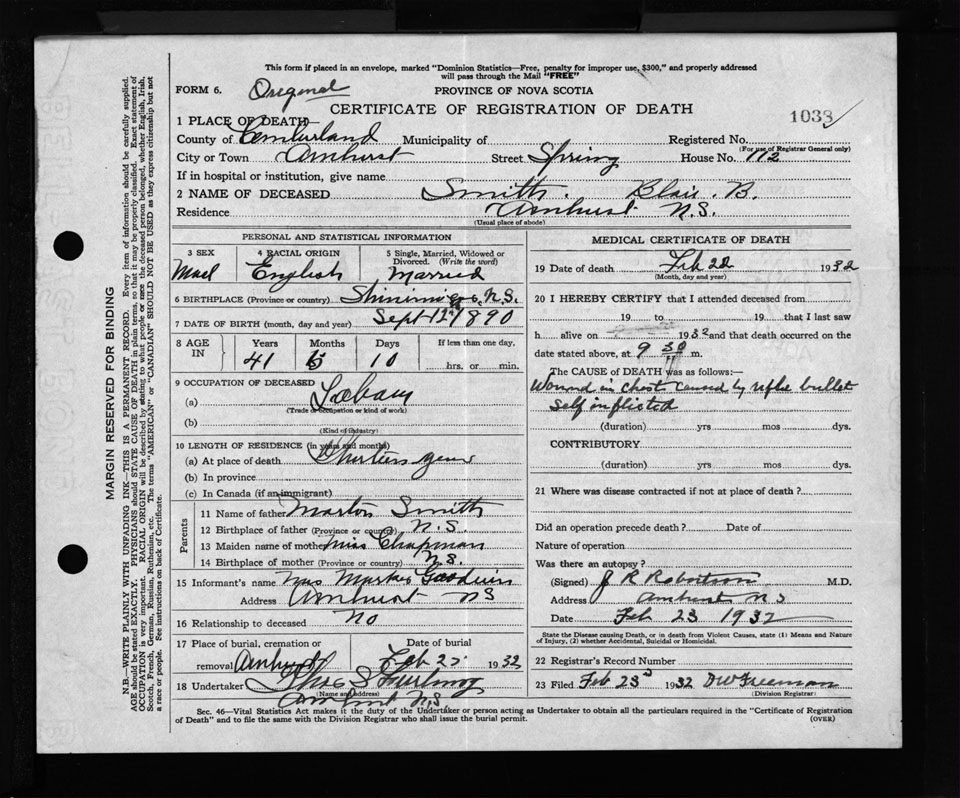 This form if placed in an envelope, marked "Dominion Statistics—Free, penalty for improper use, $300," and properly addressed
will pass through the Mail "FREE"
FORM 6. Original PROVINCE OF NOVA SCOTIA
CERTIFICATE OF REGISTRATION OF DEATH
1033
1 PLACE OF DEATH
County of Cumberland Municipality of Registered No.
(For use of Registrar General only)
City or Town Amherst Street Spring House No. 112
If in hospital or institution, give name
2 NAME OF DECEASED Smith. Blair. B.
Residence Amherst N.S.
(Usual place of abode)
PERSONAL AND STATISTICAL INFORMATION
3 SEX 4 RACIAL ORIGIN 5 Single, Married, Widowed or
Divorced. (Write the word)
Mael English Married
6 BIRTHPLACE (Province or country) N.S.
7 DATE OF BIRTH (month, day and year) Sept 12th 1890
8 AGE IN Years Months Days If less than one day,
41 5 10 hrs. or min.
9 OCCUPATION OF DECEASED
(a)
(Trade or occupation or kind of work)
(b)
(Kind of industry)
10 LENGTH OF RESIDENCE (in years and months)
(a) At place of death Thirteen years
(b) In province
(c) In Canada (if an immigrant)
Parents
11 Name of father Smith
12 Birthplace of father (Province or country) N.S.
13 Maiden name of mother Miss Chapman
14 Birthplace of mother (Province or country) N.S.
15 Informant's name Mrs
Address Amherst NS
16 Relationship to deceased No
17 Place of burial, cremation or Date of burial
removal Amherst Feb 25 1932
18 Undertaker
(Name and address)
Amherst N.S
MEDICAL CERTIFICATE OF DEATH
19 Date of death Feb 22 1932
(Month, day and year)
20 I HEREBY CERTIFY that I attended deceased from
19 to 19 that I last saw
h alive on 1932 and that death occurred on the
date stated above, at 9 30 m.
The CAUSE of DEATH was as follows:—
Wound in chest caused by rifle bullet
self inflicted
(duration) yrs mos dys.
CONTRIBUTORY
(duration) yrs mos dys.
21 Where was disease contracted if not at place of death?
Did an operation precede death? Date of
Nature of operation
Was there an autopsy?
(Signed) J R Robertson M.D.
Address Amherst N S
Date Feb 23 1932
State the Disease causing Death, or in death from Violent Causes, state (1) Means and Nature
of Injury, (2) whether Accidental, Suicidal or Homicidal.
22 Registrar's Record Number
23 Filed Feb 23d 1932 DW Freeman
(Division Registrar)
Sec. 46—Vital Statistics Act makes it the duty of the Undertaker or person acting as Undertaker to obtain all the particulars required in the "Certificate of Registration
of Death" and to file the same with the Division Registrar who shall issue the burial permit. (OVER)
MARGIN RESERVED FOR BINDING
N.B.—WRITE PLAINLY WITH UNFADING INK—THIS IS A PERMANENT RECORD. Every item of information should be carefully supplied.
AGE should be stated EXACTLY. PHYSICIANS should STATE CAUSE OF DEATH in plain terms, so that it may be properly classified. Exact statement of
OCCUPATION is very important. RACIAL ORIGIN will be described by stating to what people or race the deceased person belonged, whether English, Irish,
Scotch, French, German, Russian, Ruthenian, etc. The terms "AMERICAN" or "CANADIAN" SHOULD NOT BE USED as they express citizenship but not
a race or people. See instructions on back of Certificate.